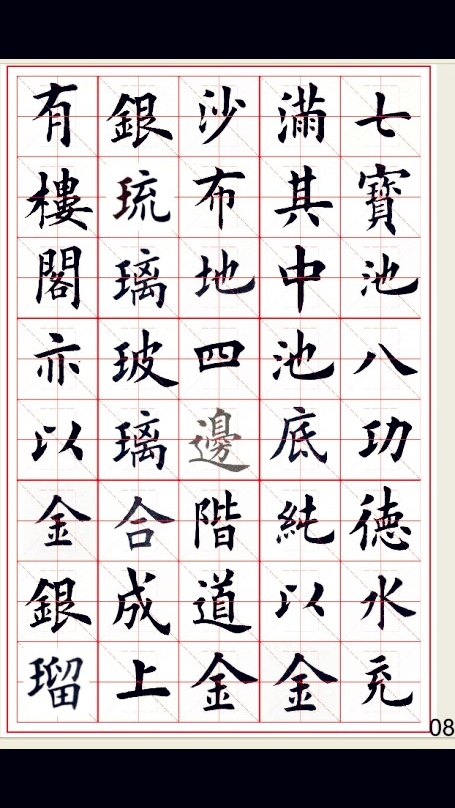 七寶池八功德水充
滿其中池底純以金
沙布地四邊階道金
銀琉璃玻璃合成上
有樓閣亦以金銀瑠
08